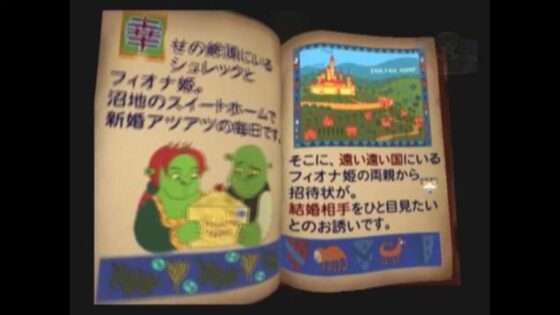 幸
せの絶頂にいる
シュレックと
フィオナ姫。
沼地のスイートホームで
新婚アツアツの毎日です。
そこに、遠い遠い国にいる
フィオナ姫の両親から、
招待状が。
結婚相手をひと目見たい
とのお誘いです。